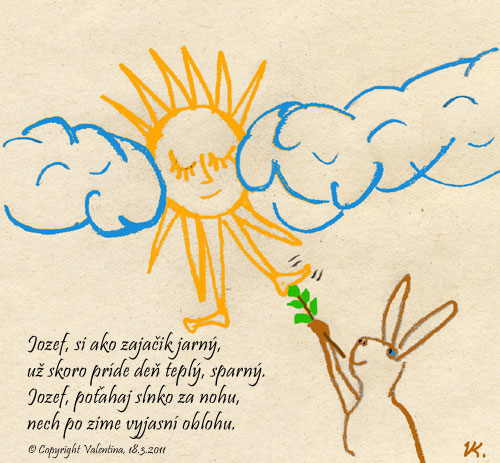 Jozef, si ako zajačik jarný,
už skoro pride deň teplý, sparný.
Jozef, poťahaj slnko za nohu,
nech po zime vyjasní oblohu.
© Copyright Valentina, 18.3.2011
VK.